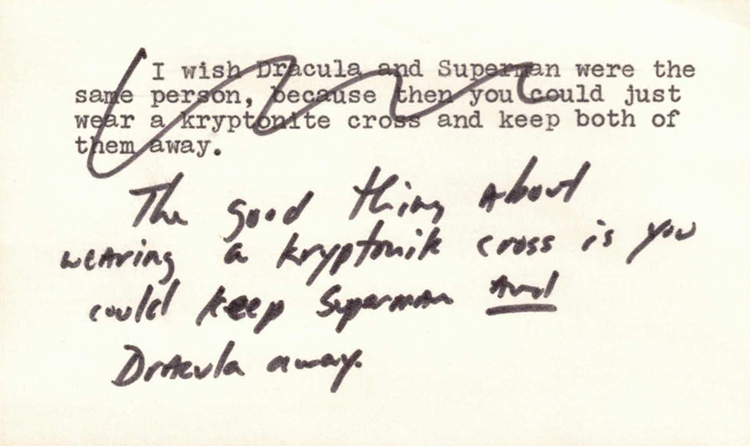 I wish Dracula and Superman were the
same person, because then you could just
wear a kryptonite cross and keep both of
them away.
The good thing about
wearing a kryptonite cross is you
could keep Superman and
Dracula away.